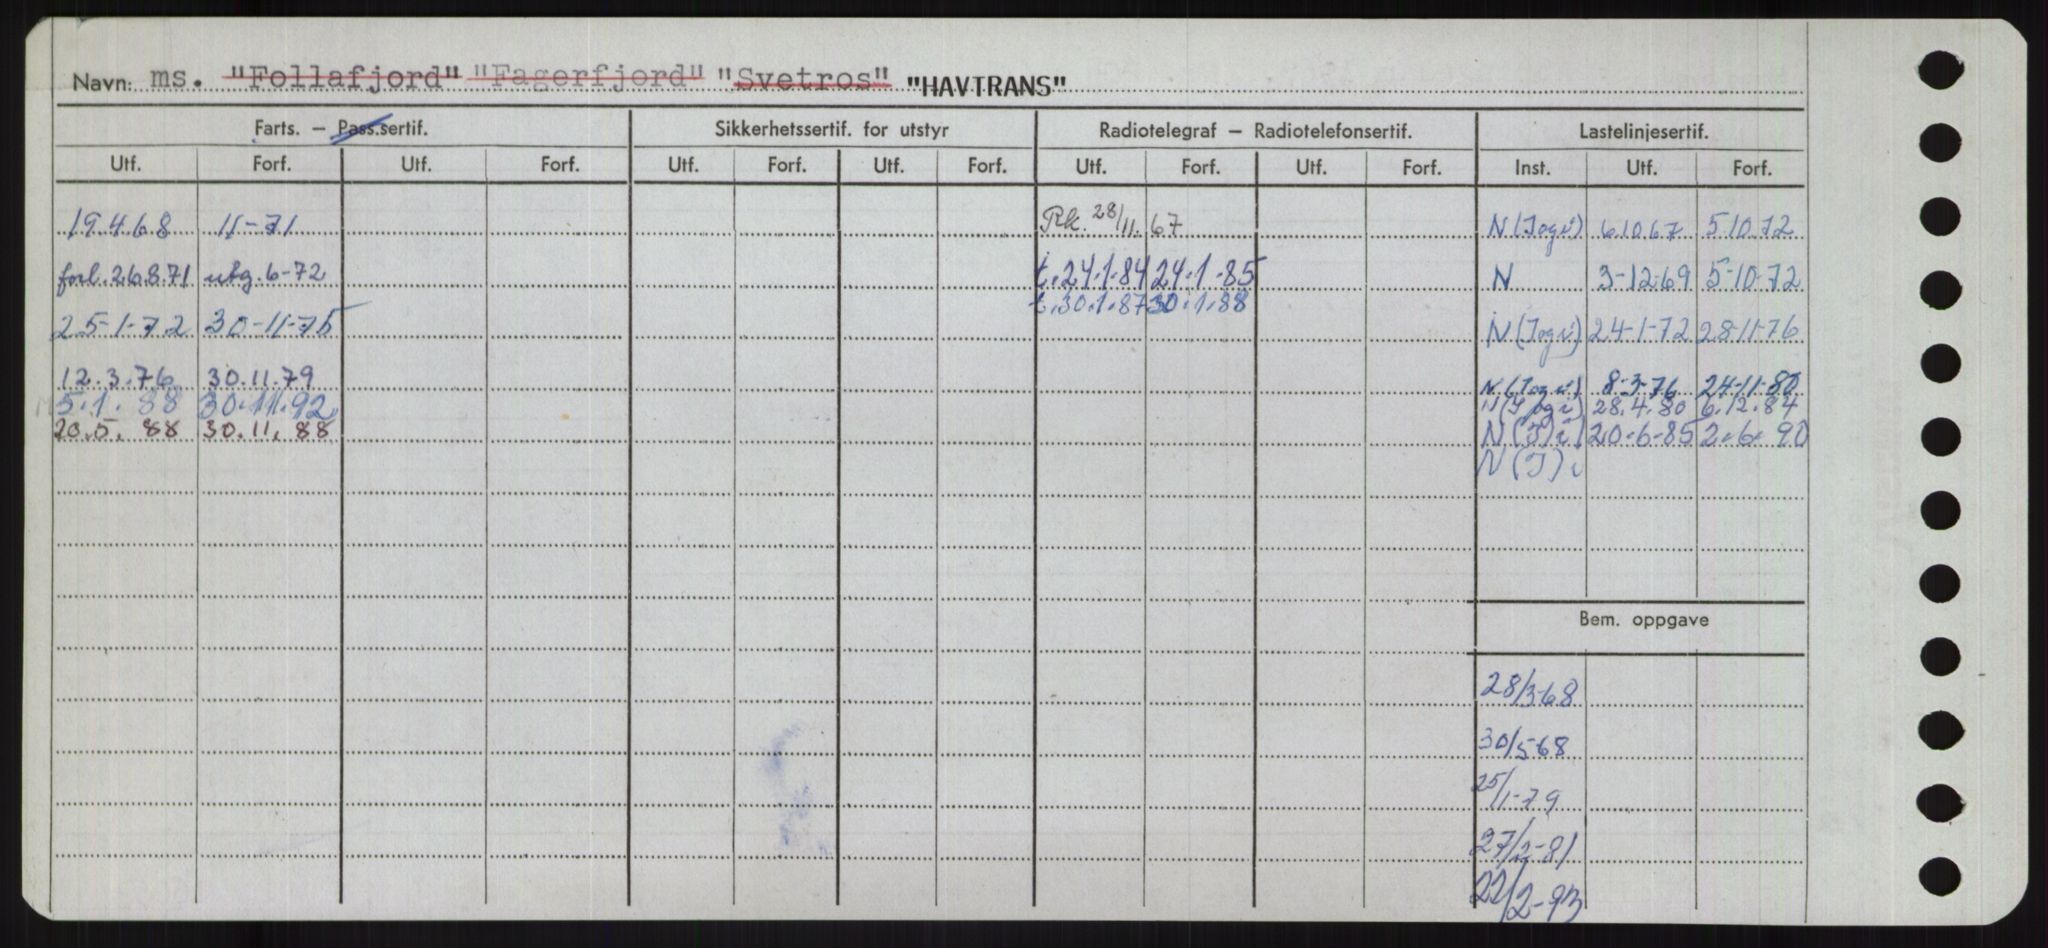 Navn: ms. "Follafjord" "Fagerfjord" "Svetros" "HAVTRANS"
Farts. – Pass.sertif. Sikkerhetssertif. for utstyr Radiotelegraf – Radiotelefonsertif. Lastelinjesertif.
Utf. Forf. Utf. Forf. Utf. Forf. Utf. Forf. Utf. Forf. Utf. Forf. Inst. Utf. Forf.
19.4.68 11-71 Rk. 28/11.67 N(Iogi) 6.10.67 5-10.72
forl.26.8.71 utg.6-72 t.24.1.84 24.1.85 N 3-12-69 5-10-72
t.30.1.87 30.1.88
25-1-72 30-11-75 N(Iogi) 24-1-72 28-11-76
12.3.76 30.11.79 N(Iogi) 8-3-76 24-11-80
5.1.88 30.11.92 N(Iogi) 28.4.80 6.12.84
20.5.88 30.11.88 N(I)i 20.6-85 2.6.90
N(I)i
Bem. oppgave
28/3-68
30/5-68
25/1-79
27/2-81
22/2-93